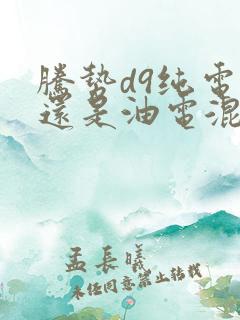 騰勢d9纯電
還是油電混
孟長曦
未経同意禁止转载